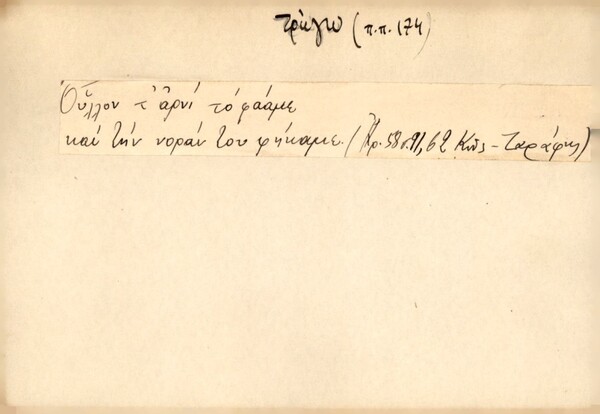 τρώγω (π.π. 174)
Οὗλλον τ' ἀρνί τό φάαμε
καί τήν νοράν του φήκαμε. (Ἀρ. 58 σ. 91, 62 Κῶς - Ζαράφτης)